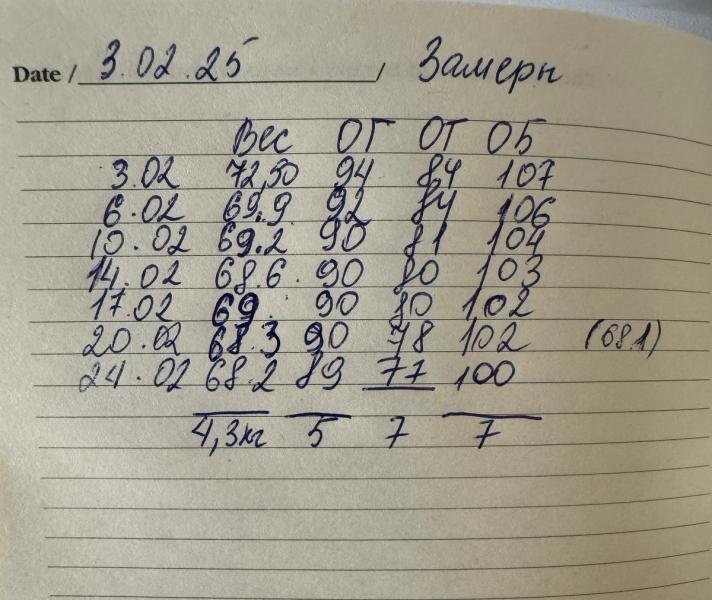 Date / 3.02.25 / Замеры
Вес ОГ ОТ ОБ
3.02 72,50 94 84 107
6.02 69.9 92 84 106
10.02 69.2 90 81 104
14.02 68.6. 90 80 103
17.02 69. 90 80 102
20.02 68.3 90 78 102 (68.1)
24.02 68.2 89 77 100
4,3кг 5 7 7